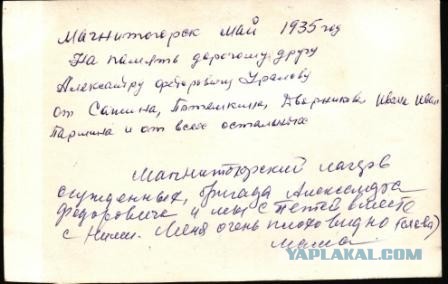 Магнитогорск май 1935 год
На память дорогому другу
Александру Федоровичу Уралову
от Сашина, Потемкина, Дворникова Ивана Иван
Паршина и от всех остальных
Магнитогорский лагерь
осужденных, бригада Александра
Федоровича и мы с Петей вместе
с Ними. Меня очень плохо видно (слева)
Мама
YAPLAKAL.COM